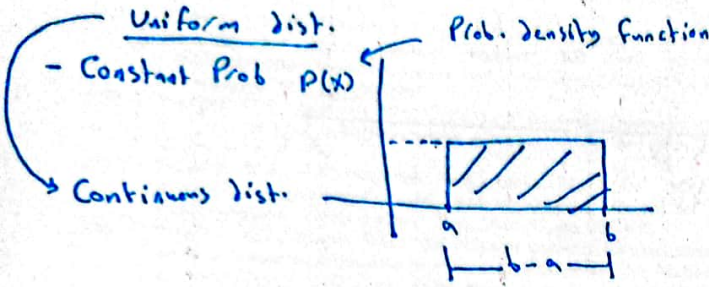 Uniform dist.
Prob. density function
- Constant Prob P(x)
Continuous dist.
a
b
b-a